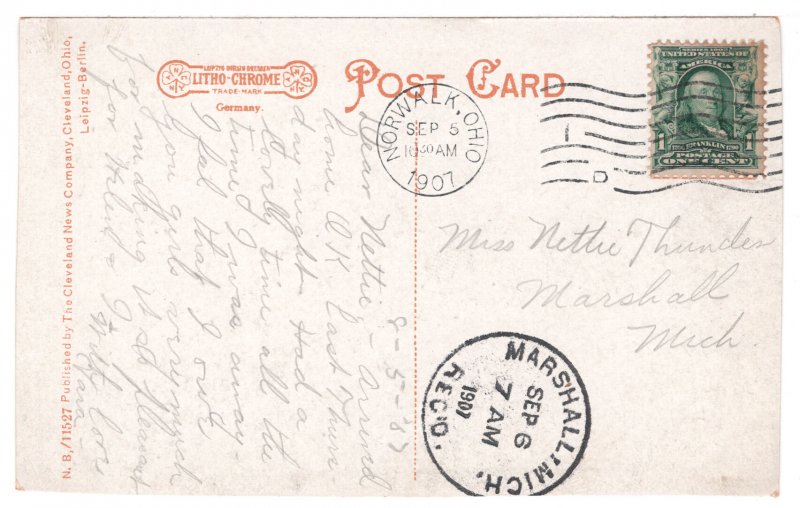 N. B./11527 Published by The Cleveland News Company, Cleveland, Ohio,
Leipzig-Berlin.
LEIPZIG BERLIN DRESDEN
LITHO-CHROME
TRADE-MARK
Germany.
POST CARD
NORWALK, OHIO
SEP 5
10 30 AM
1907
SERIES 1902
UNITED STATES OF
AMERICA
1 FRANKLIN 1
POSTAGE
ONE CENT
Miss Nettie Thunder
Marshall
Mich
MARSHALL, MICH.
SEP 6
7 AM
1907
REC'D.
Dear Nettie - arrived
home OK last Thurs-
day night. Had a
lovely time all the
time I was away-
I feel that I owe
you girls very much
for making it so pleasant
for Helen & I
With love